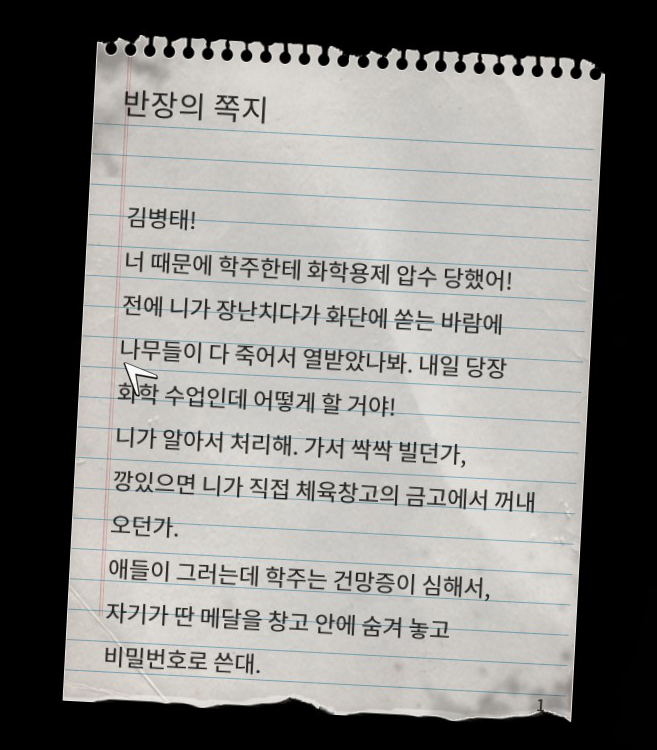 반장의 쪽지
김병태!
너 때문에 학주한테 화학용제 압수 당했어!
전에 니가 장난치다가 화단에 쏟는 바람에
나무들이 다 죽어서 열받았나봐. 내일 당장
화학 수업인데 어떻게 할 거야!
니가 알아서 처리해. 가서 싹싹 빌던가,
깡있으면 니가 직접 체육창고의 금고에서 꺼내
오던가.
애들이 그러는데 학주는 건망증이 심해서,
자기가 딴 메달을 창고 안에 숨겨 놓고
비밀번호로 쓴대.
1